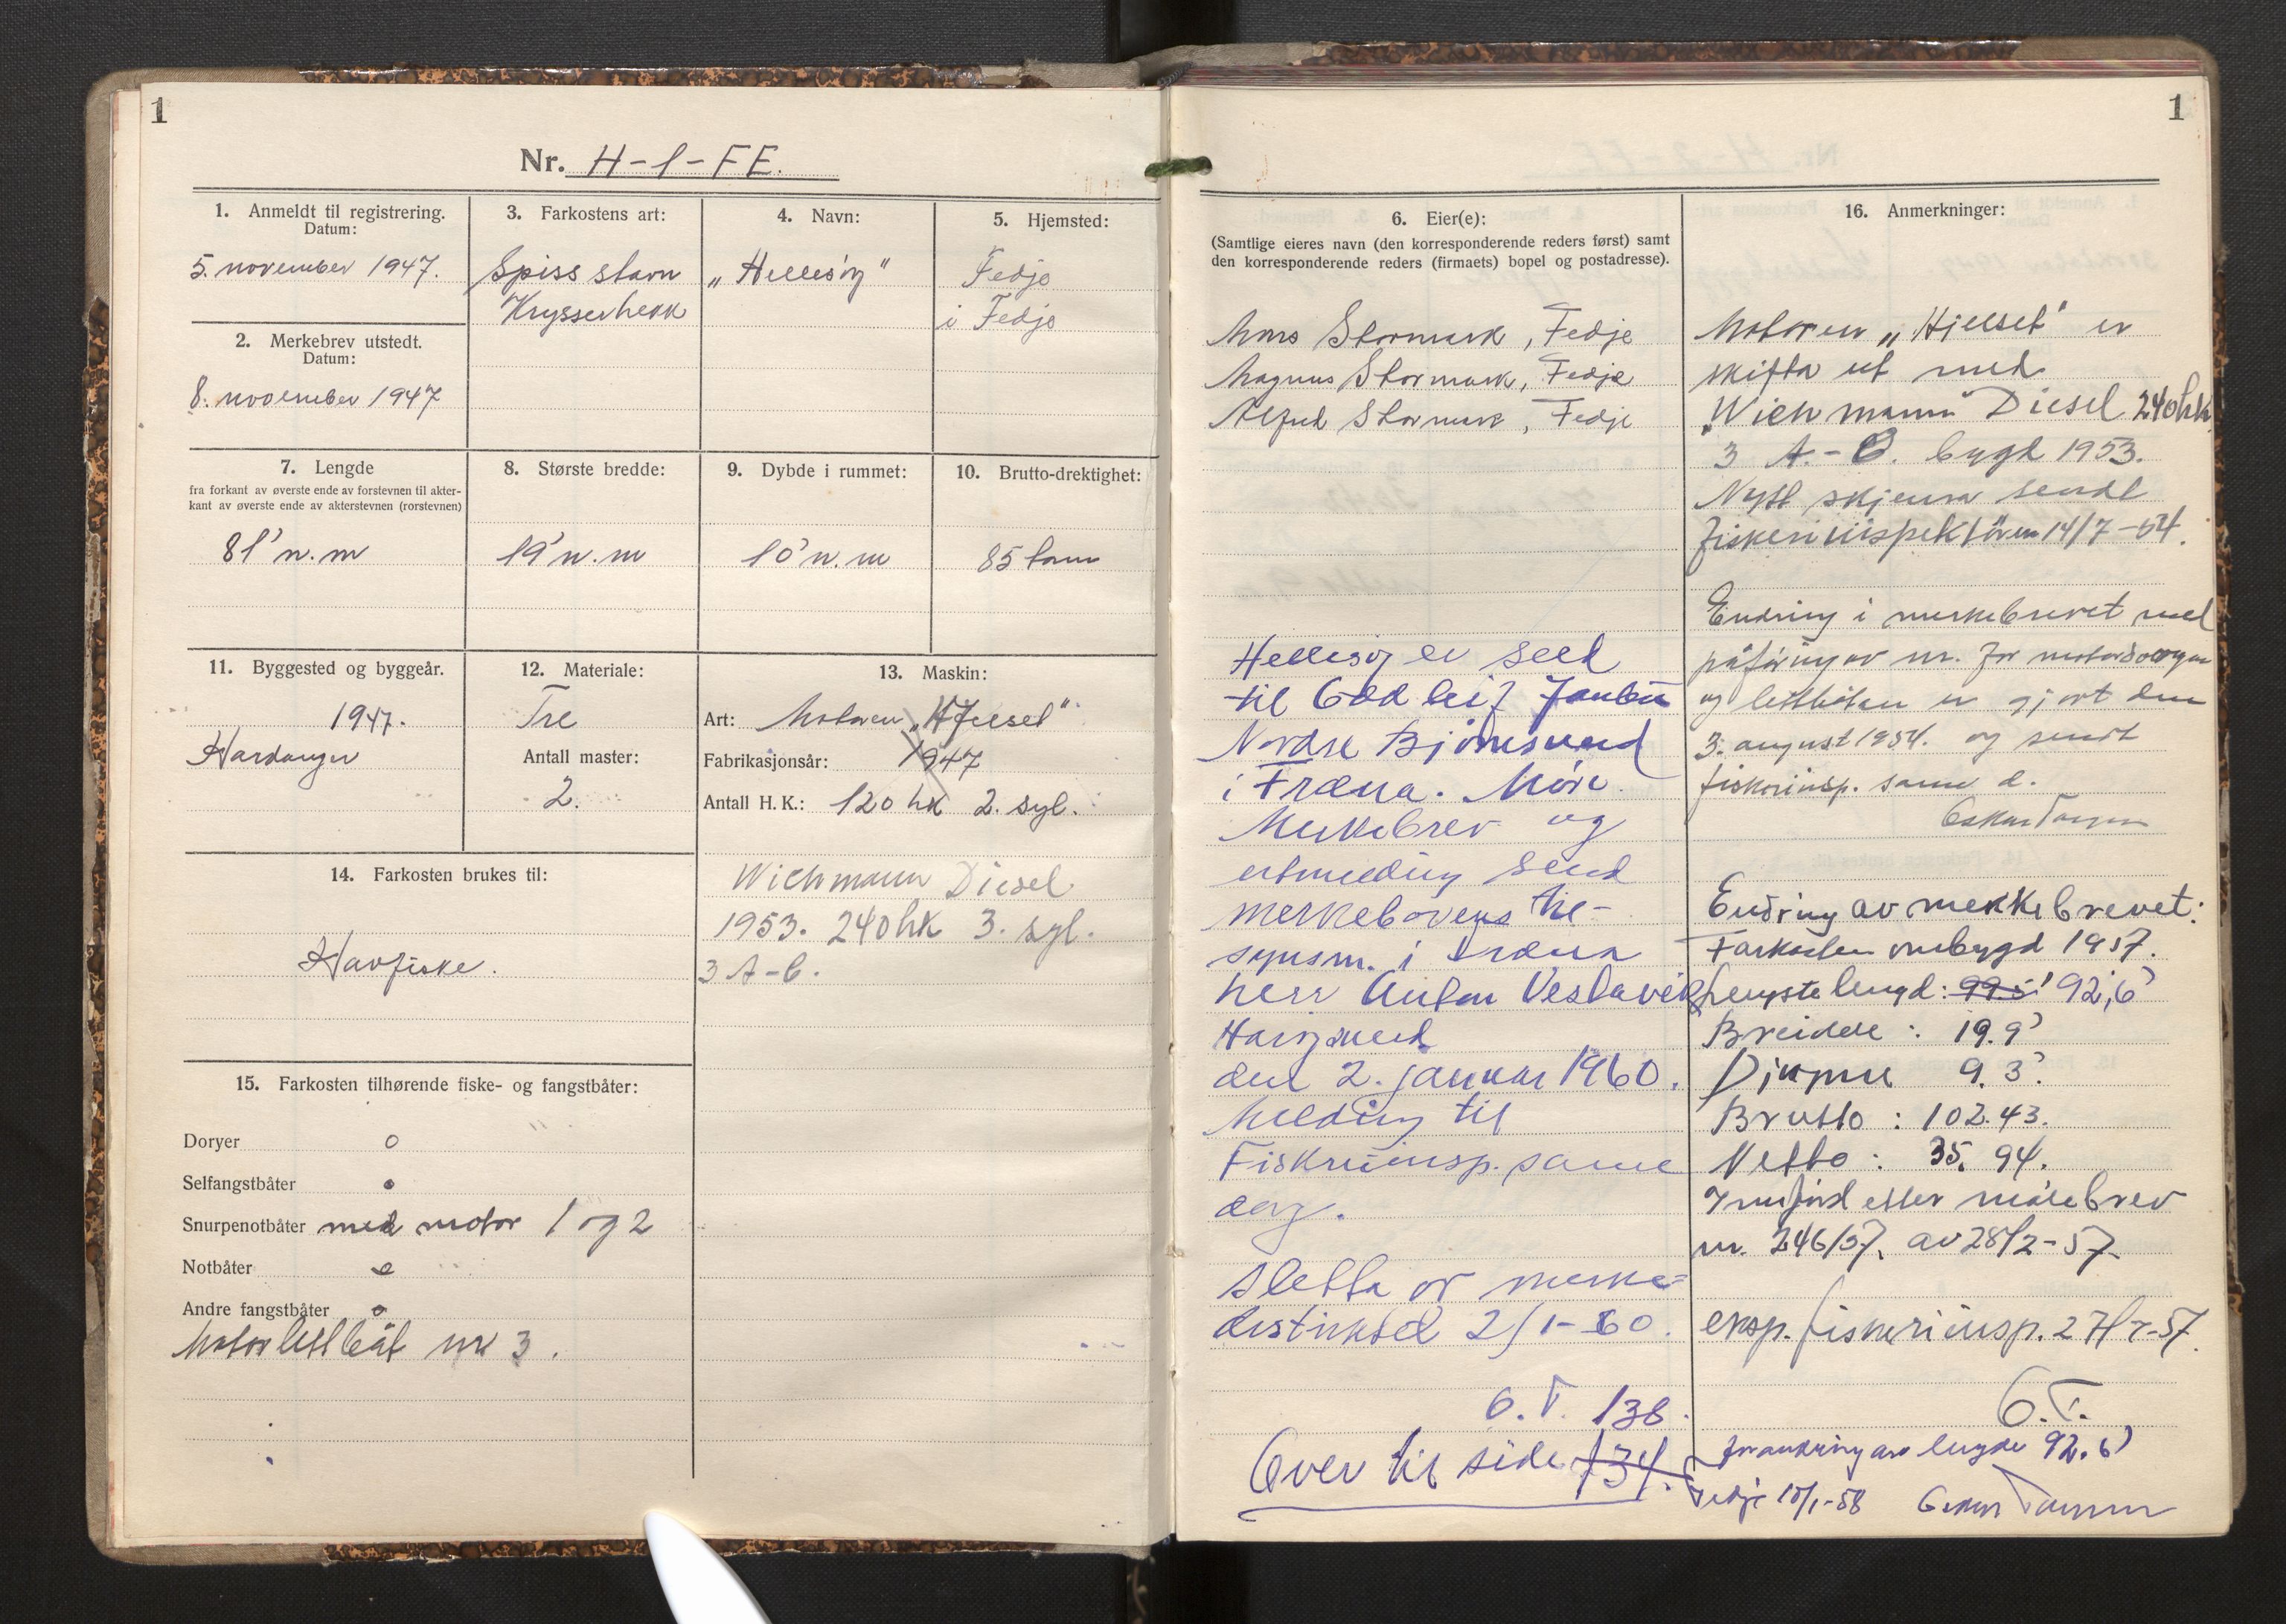 1
Nr. H-1-FE.
1. Anmeldt til registrering.
Datum:
5. november 1947.
2. Merkebrev utstedt.
Datum:
8. november 1947
3. Farkostens art:
Spiss stavn
Krysserhekk
4. Navn:
„Hellesøy"
5. Hjemsted:
Fedje
i Fedje
7. Lengde
fra forkant av øverste ende av forstevnen til akter-
kant av øverste ende av akterstevnen (rorstevnen)
81' n.m
8. Største bredde:
19' n.m
9. Dybde i rummet:
10' n.m
10. Brutto-drektighet:
85 tonn
11. Byggested og byggeår.
1947.
Hardanger
12. Materiale:
Tre
Antall master:
2.
13. Maskin:
Art: Motoren „Hjelset"
Fabrikasjonsår: 1947
Antall H. K.: 120 hk 2. syl.
Wichmann Diesel
1953. 240 hk 3. syl.
3 A-C.
14. Farkosten brukes til:
Havfiske.
15. Farkosten tilhørende fiske- og fangstbåter:
Doryer 0
Selfangstbåter 0
Snurpenotbåter med motor 1 og 2
Notbåter 0
Andre fangstbåter 0
Motorlettbåt nr 3.
1
6. Eier(e):
(Samtlige eieres navn (den korresponderende reders først) samt
den korresponderende reders (firmaets) bopel og postadresse).
Mons Stormark, Fedje
Magnus Stormark, Fedje
Alfred Stormark, Fedje
Hellesøy er seld
til Odd Leif
Nordre Bjørnsund
i Fræna. Møre.
Merkebrev og
utmelding send
merkebøvens til-
synsm. i Fræna
herr Anton Vestavik
Harøysund
den 2. januar 1960.
Melding til
Fiskeriinsp. same
dag.
Sletta or merke-
distriktet 2/1-60.
O.T. 138.
Over til side 134.
16. Anmerkninger:
Motoren „Hjelset" er
skifta ut med
„Wichmann" Diesel 240 hk
3 A.-C. bygd 1953.
Nytt skjema sendt
fiskeriinspektøren 14/7-54.
Endring i merkebrevet med
påføring av nr. for
og lettbåten er gjort den
3. august 1954. og sendt
fiskeriinsp. same d.
Oskar
Endring av merkebrevet:
Farkosten ombygd 1957.
Lengste lengd: 99.5' 92,6'
Breidde: 19.9'
Djupne 9.3'.
Brutto: 102.43.
Netto: 35.94.
Innførd etter målebrev
nr. 246/57. av 28/2-57
eksp. fiskeriinsp. 27/7-57.
O.T.
forandring av lengde 92.6'
Fedje 10/1-58 Oskar